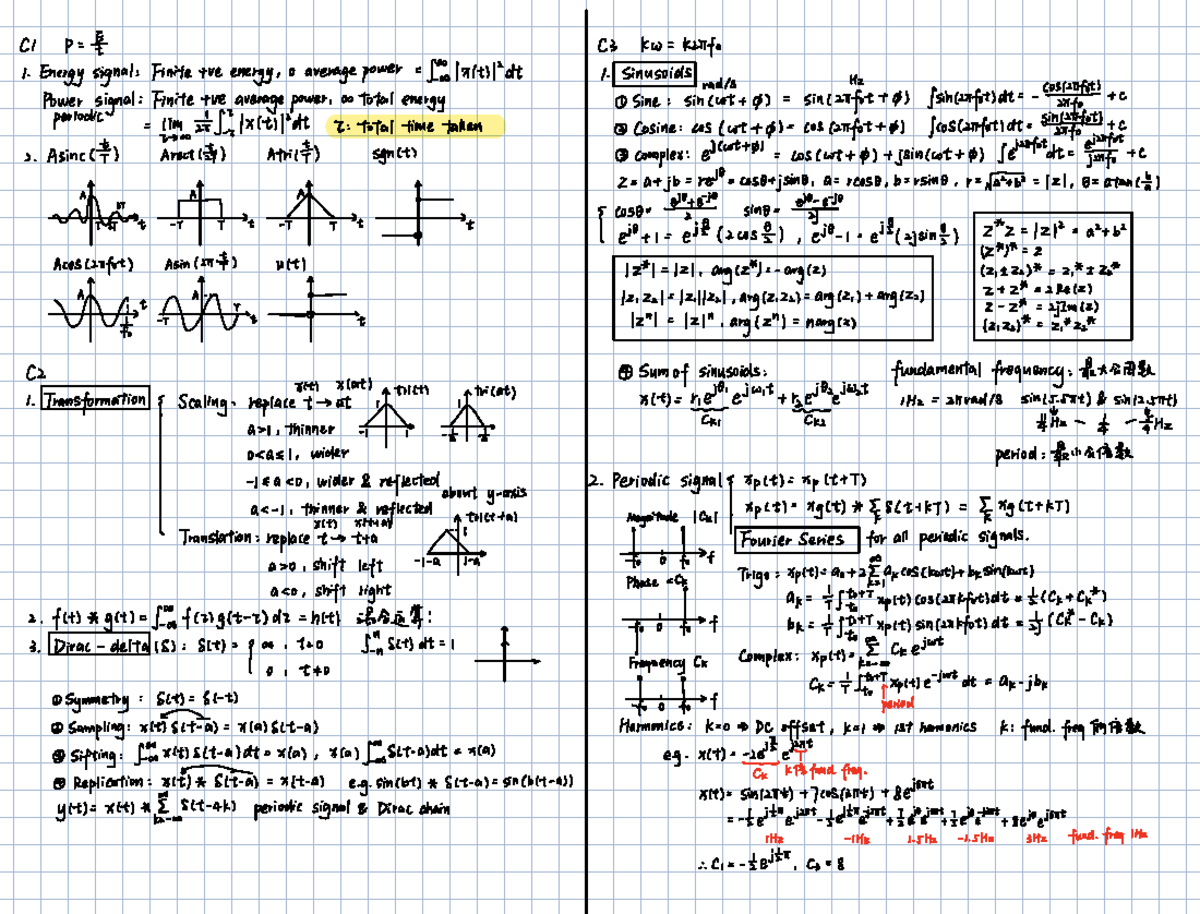 C1 P = E/t
1. Energy signal: Finite +ve energy, 0 average power = ∫_{-∞}^{∞} |x(t)|² dt
Power signal: Finite +ve average power, ∞ Total energy
periodic = lim_{τ→∞} 1/2τ ∫_{-τ}^{τ} |x(t)|² dt τ: total time taken
2. Asinc(t/T) Arect(t/T) Atri(t/T) sgn(t)
A T 2T t A -T T t A -T T t t
Acos(2πf₀t) Asin(2π t/T) u(t)
A 1/f₀ t A -T T t t
C2
1. Transformation { Scaling: replace t → at
x(t) x(at)
tri(t) 1 -1 1 tri(at) 1 -1/a 1/a
a>1, thinner
0<a≤1, wider
-1≤a<0, wider & reflected
about y-axis
a<-1, thinner & reflected
x(t) x(t+a)
Translation: replace t → t+a
tri(t+a) 1 -1-a 1-a
a>0, shift left
a<0, shift right
2. f(t) * g(t) = ∫_{-∞}^{∞} f(τ)g(t-τ) dτ = h(t)
3. Dirac-delta (δ): δ(t) = { ∞, t=0 ∫_{-n}^{n} δ(t) dt = 1
0, t≠0
① Symmetry: δ(t) = δ(-t)
② Sampling: x(t)δ(t-a) = x(a)δ(t-a)
③ Sifting: ∫_{-∞}^{∞} x(t)δ(t-a)dt = x(a), x(a)∫_{-∞}^{∞} δ(t-a)dt = x(a)
④ Replication: x(t) * δ(t-a) = x(t-a) e.g. sin(bt) * δ(t-a) = sin(b(t-a))
y(t) = x(t) * Σ_{k=-∞}^{∞} δ(t-4k) periodic signal & Dirac chain
C3 kω = k2πf₀
1. Sinusoids
rad/s Hz
① Sine: sin(ωt+φ) = sin(2πf₀t+φ) ∫sin(2πf₀t)dt = -cos(2πf₀t)/2πf₀ + c
② Cosine: cos(ωt+φ) = cos(2πf₀t+φ) ∫cos(2πf₀t)dt = sin(2πf₀t)/2πf₀ + c
③ Complex: e^{j(ωt+φ)} = cos(ωt+φ) + jsin(ωt+φ) ∫e^{j2πf₀t}dt = e^{j2πf₀t}/j2πf₀ + c
z = a+jb = re^{jθ} = cosθ+jsinθ, a=rcosθ, b=rsinθ, r=√(a²+b²) = |z|, θ=atan(b/a)
{ cosθ = (e^{jθ}+e^{-jθ})/2 sinθ = (e^{jθ}-e^{-jθ})/2j
e^{jθ}+1 = e^{jθ/2}(2cos θ/2), e^{jθ}-1 = e^{jθ/2}(2jsin θ/2)
|z*| = |z|, arg(z*) = -arg(z)
|z₁z₂| = |z₁||z₂|, arg(z₁z₂) = arg(z₁) + arg(z₂)
|zⁿ| = |z|ⁿ, arg(zⁿ) = narg(z)
z*z = |z|² = a²+b²
(z*)* = z
(z₁±z₂)* = z₁*±z₂*
z+z* = 2Re(z)
z-z* = 2jIm(z)
(z₁z₂)* = z₁*z₂*
④ Sum of sinusoids:
x(t) = r₁e^{jθ₁}e^{jω₁t} + r₂e^{jθ₂}e^{jω₂t}
Ck₁ Ck₂
fundamental frequency: 最大公因数
1Hz = 2πrad/s sin(5.5πt) & sin(2.5πt)
11/4 Hz - 1/4 - 5/4 Hz
period: 最小公倍数
2. Periodic signal { xp(t) = xp(t+T)
xp(t) = xg(t) * Σ_k δ(t+kT) = Σ_k xg(t+kT)
Magnitude |Ck|
-f₀ 0 f₀ f
Fourier Series for all periodic signals.
Phase ∠Ck
-f₀ 0 f₀ f
Trigo: xp(t) = a₀+2Σ_{k=1}^{∞} aₖcos(kωt)+bₖsin(kωt)
aₖ = 1/T ∫_{t₀}^{t₀+T} xp(t)cos(2πkf₀t)dt = 1/2(Cₖ+Cₖ*)
bₖ = 1/T ∫_{t₀}^{t₀+T} xp(t)sin(2πkf₀t)dt = 1/2j(Cₖ*-Cₖ)
Frequency Ck
-f₀ 0 f₀ f
Complex: xp(t) = Σ_{k=-∞}^{∞} Cₖe^{jωt}
Cₖ = 1/T ∫_{t₀}^{t₀+T} xp(t)e^{-jωt} dt = aₖ-jbₖ
period
Harmonics: k=0 ⇒ DC offset, k=1 ⇒ 1st harmonics k: fund. freq 的倍数
e.g. x(t) = -2e^{jπ/2} e^{j2πt}
Ck fund freq.
x(t) = sin(2πt) + 7cos(2πt) + 8e^{j6πt}
1Hz -1Hz 1.5Hz -1.5Hz 3Hz fund. freq 1Hz
∴ C₁ = -1/2 e^{j1/2π}, C₃ = 8